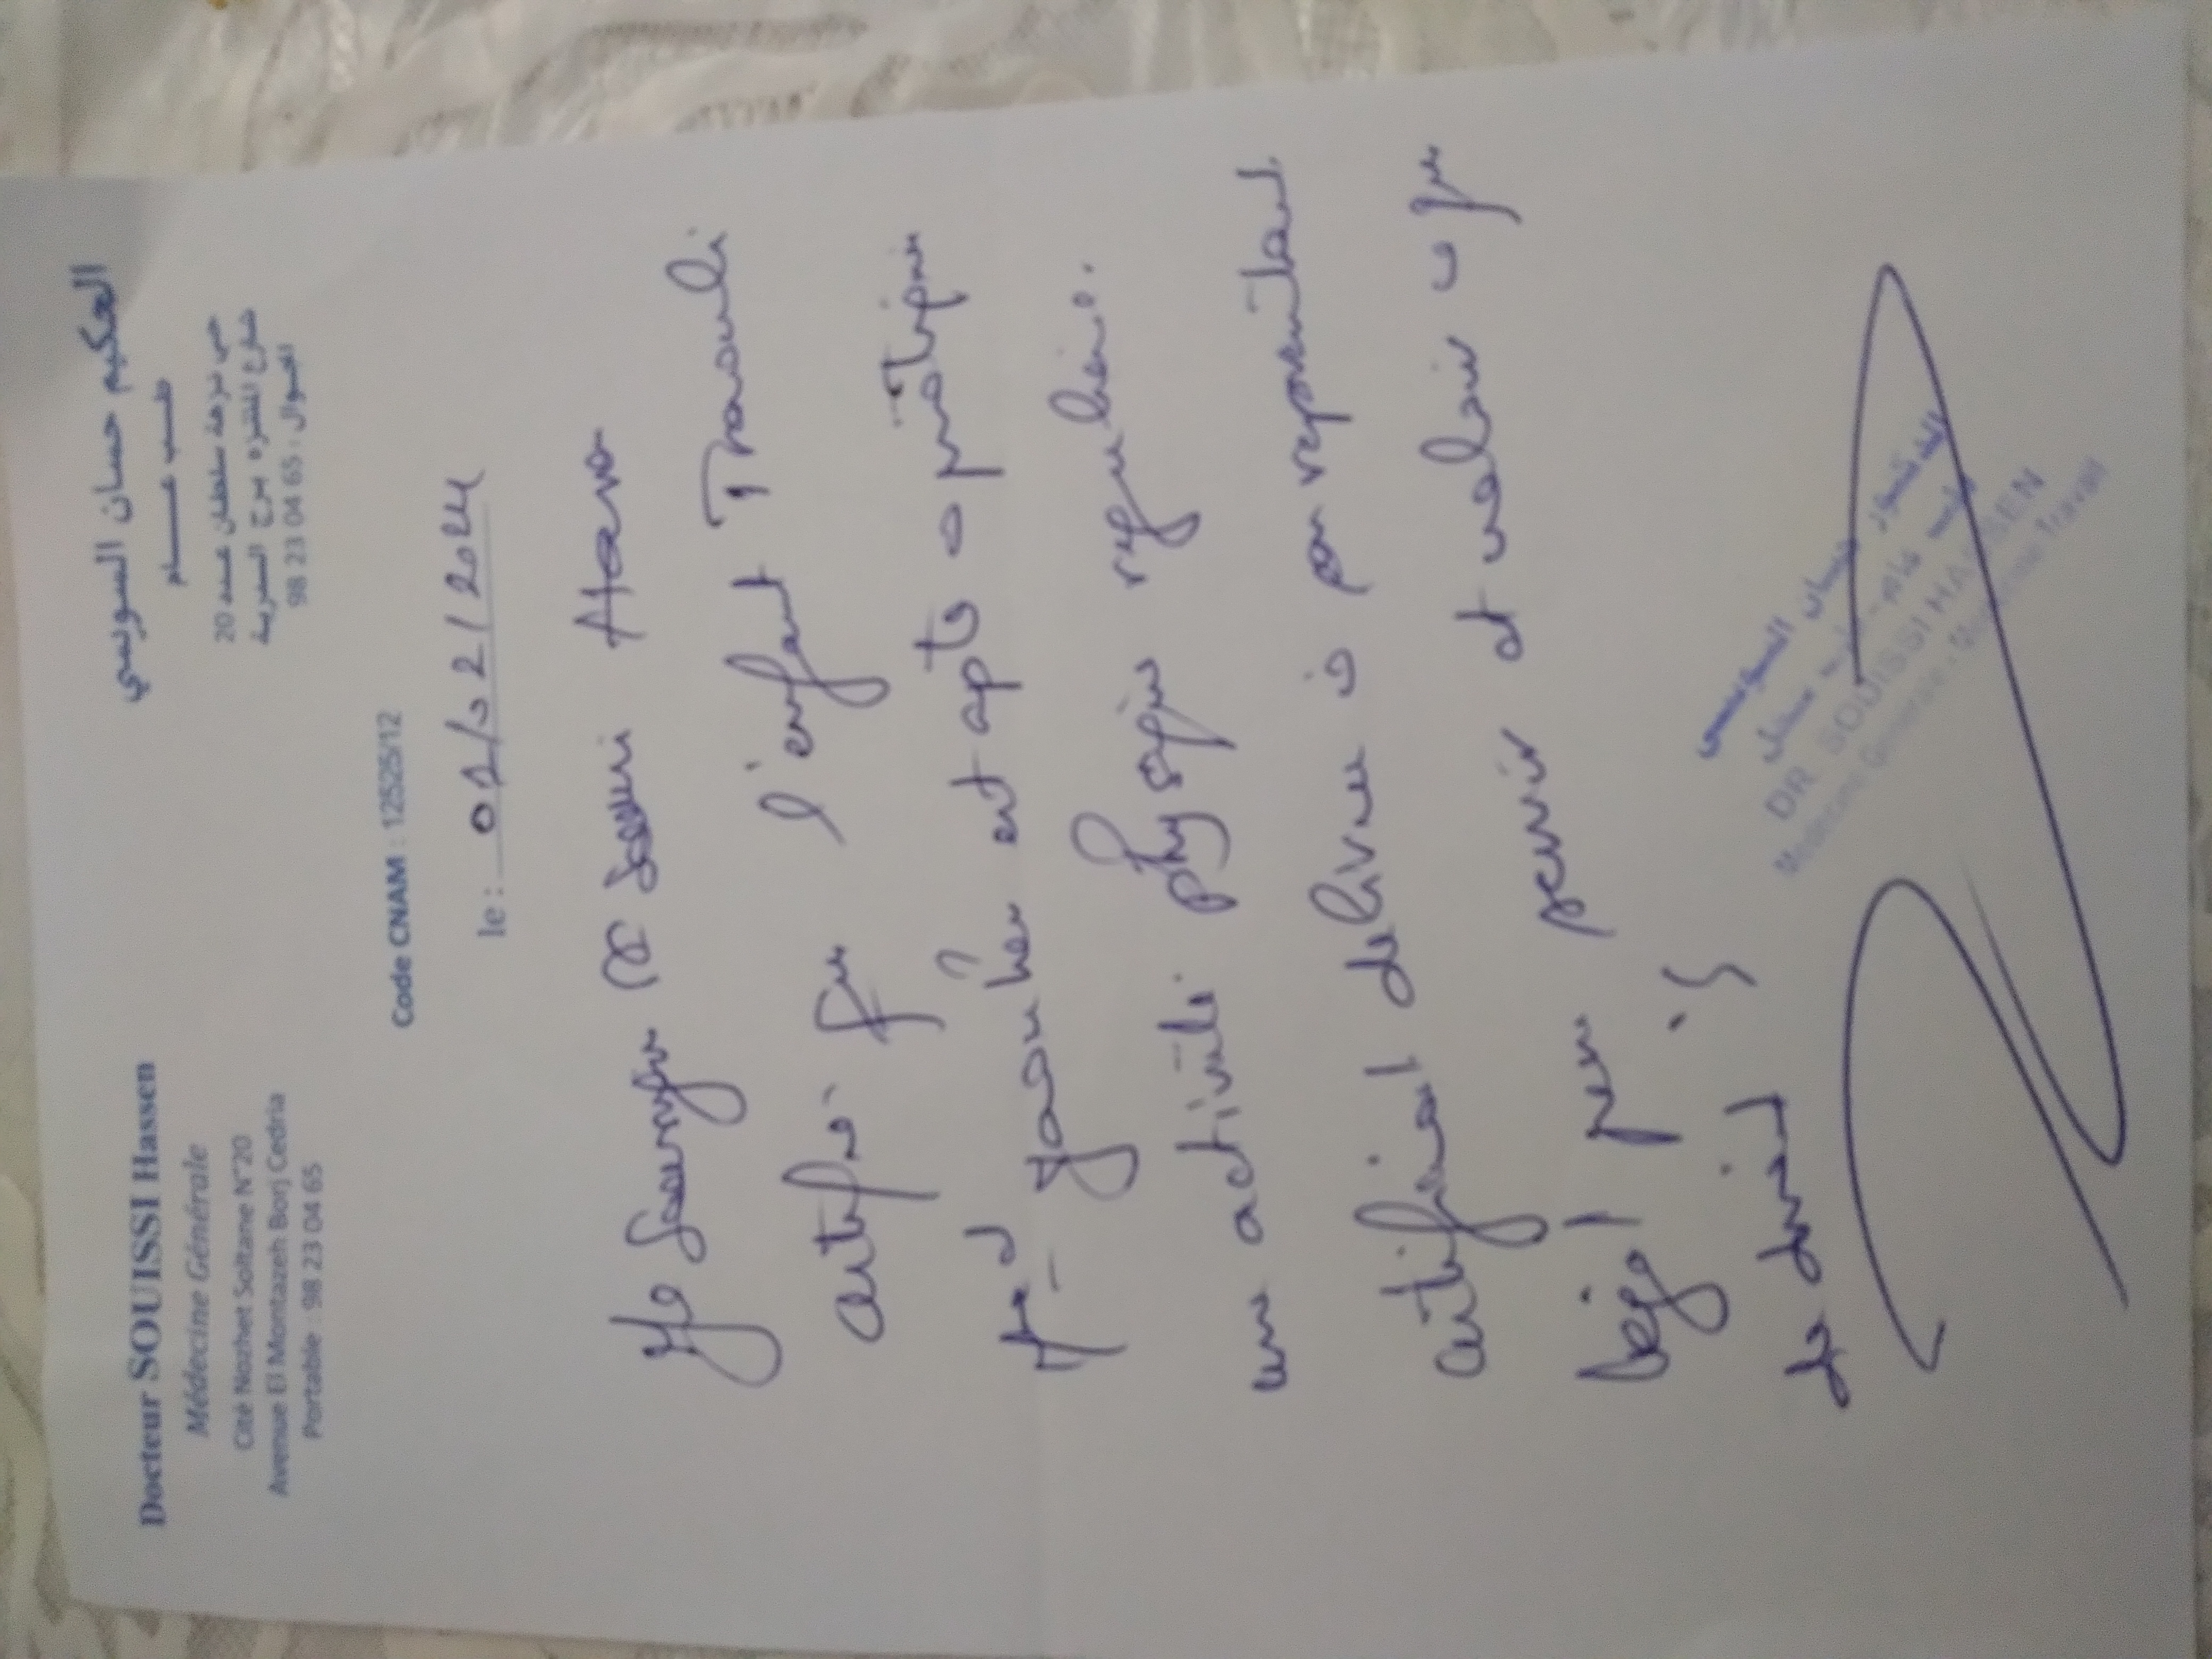 Docteur SOUISSI Hassen
Médecine Générale
Cité Nozhet Soltane N°20
Avenue El Montazeh Borj Cedria
Portable : 98 23 04 65
الحكيم حسان السويسي
طب عام
حي نزهة سلطان عدد 20
شارع المنتزه برج السدرية
الجوال : 98 23 04 65
Code CNAM : 12525/12
le : 01/02/2024
Je Soussigné Dr Souissi
certifie que l'enfant Traouli
est apte a pratiquer
une activité physique régulière.
certificat delivré à son représentant
légal pour servir et valoir ce que
de droit
الدكتور حسان السويسي
DR SOUISSI HASSEN
Médecine Générale - Médecine Travail